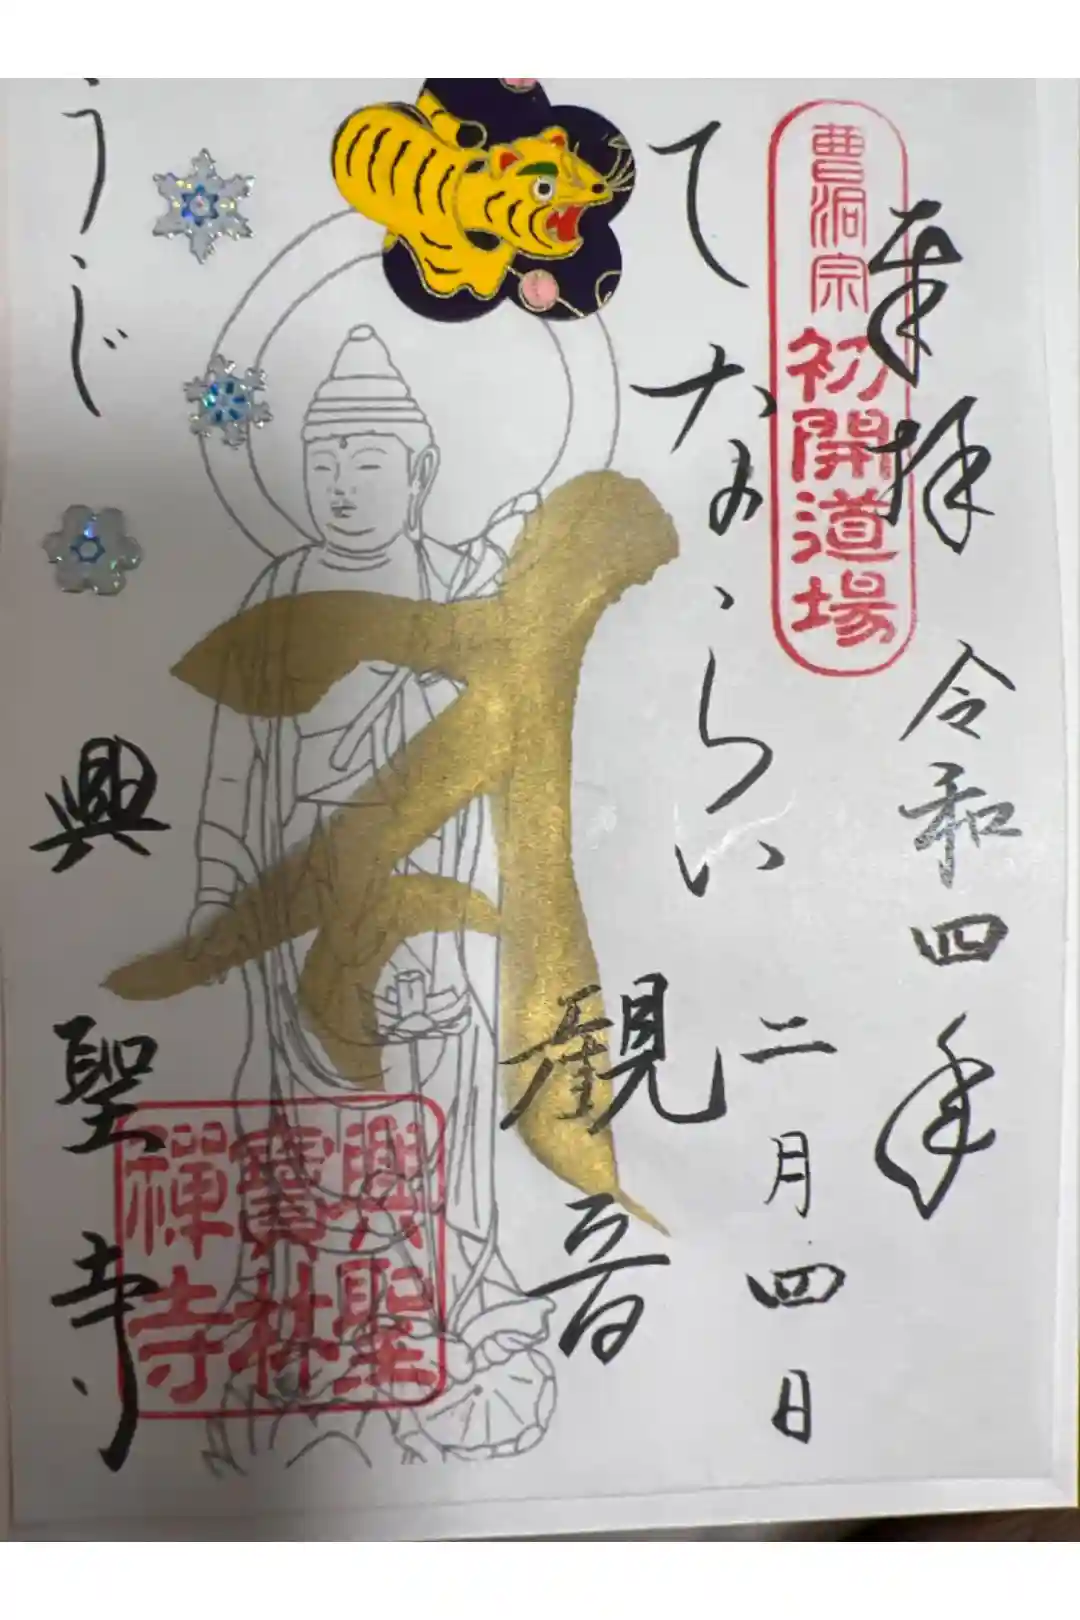 奉拝
令和四年
二月四日
曹洞宗
初開道場
てならい
観音
うじ
興聖寺
興聖
寶林
禅寺